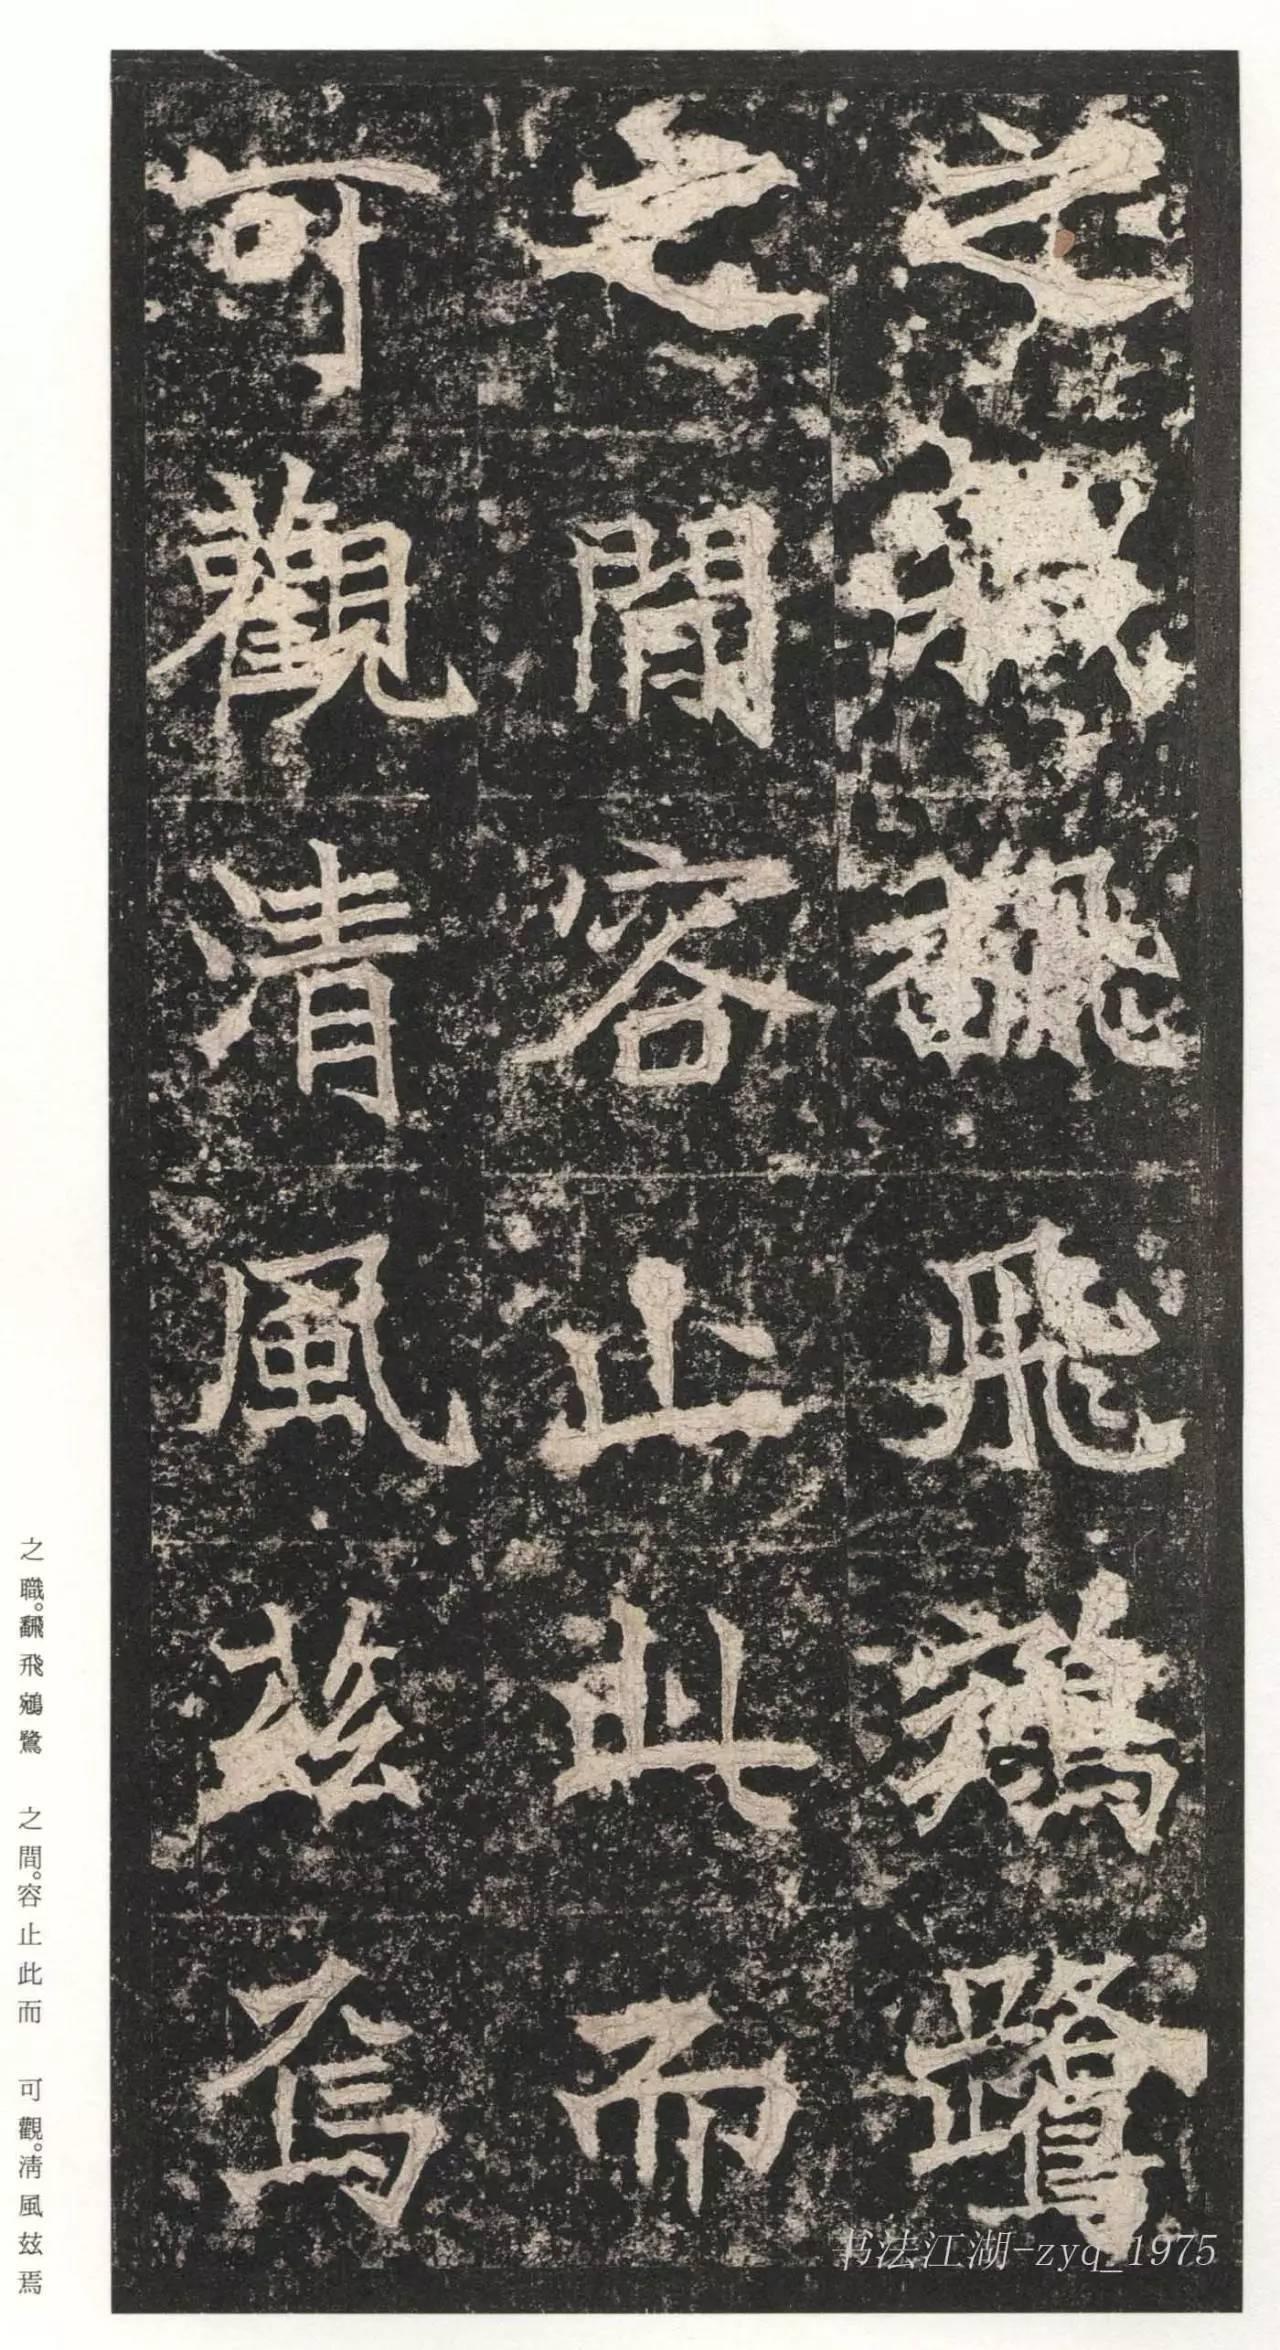 之職飜飛鵷鷺
之間容止此而
可觀清風茲焉
之職。飜飛鵷鷺 之間。容止此而 可觀。清風茲焉
书法江湖-zyq_1975